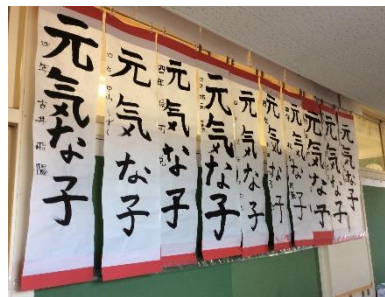 元気な子
四年
元気な子
元気な子
四年
元気な子
元気な子
元気な子
元気な子
元気な子
元気な子
元気な子